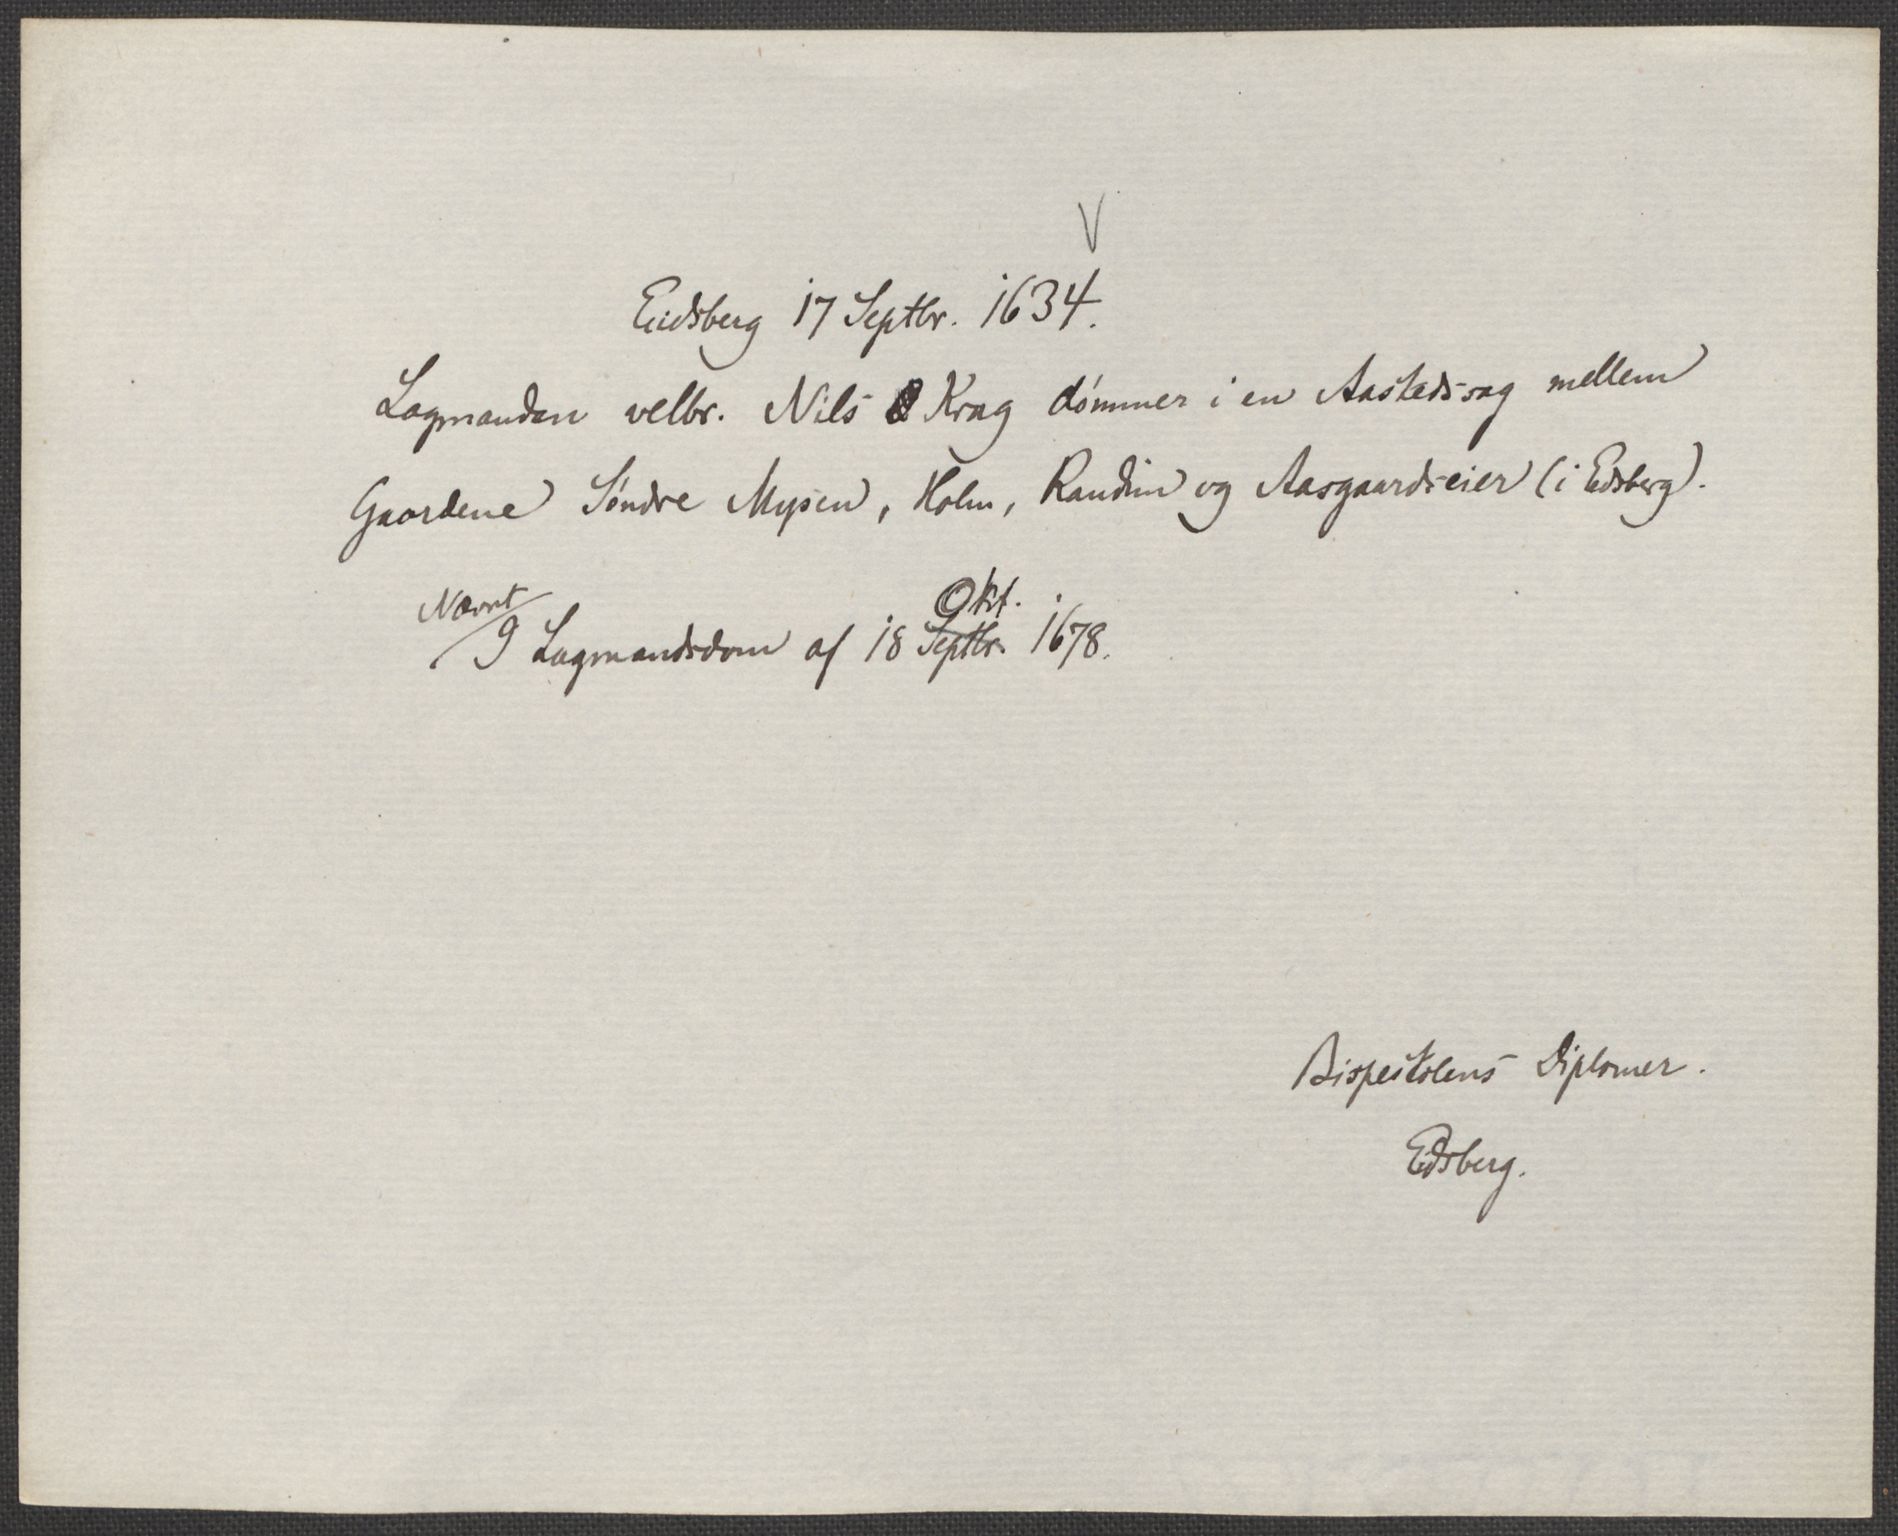 V
Eidsberg 17 Septbr. 1634.
Lagmanden velbr. Nils Krag dömmer i en Aastedssag mellem
Gaardene Söndre Mysen, Holm, Raudin og Aasgaardseier (i Edsberg).
Nævnt
Okt.
I Lagmandsdom af 18 Septbr. 1678.
Bispestolens Diplomer.
Edsberg.